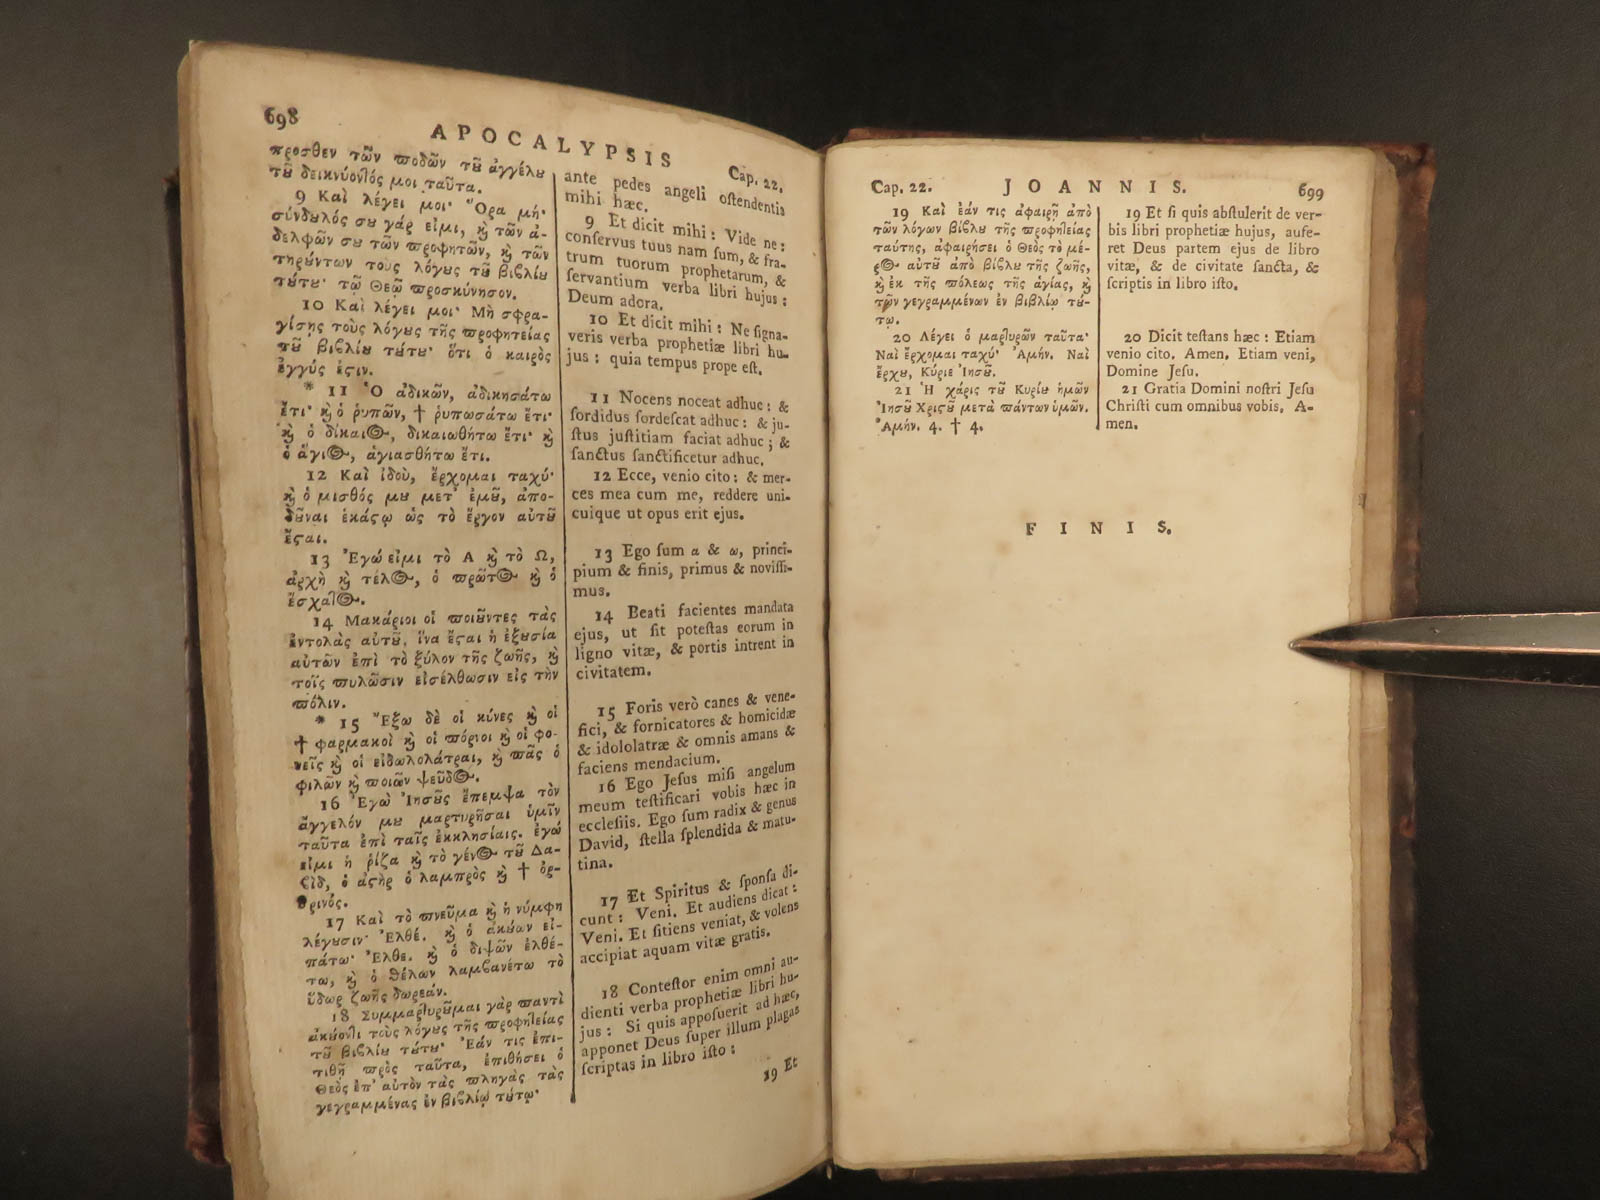 698
APOCALYPSIS
Cap. 22.
προσθεν τῶν ποδῶν τȣ͂ ἀγγέλȣ
τȣ͂ δεικνύοντός μοι ταῦτα.
9 Καὶ λέγει μοι· Ὅρα μή·
σύνδυλός σȣ γάρ εἰμι, ϗ τῶν ἀ-
δελφῶν σȣ τῶν προφητῶν, ϗ τῶν
τηρύντων τοὺς λόγȣς τȣ͂ βιβλίȣ
τύτȣ· τῷ Θεῷ προσκύνησον.
10 Καὶ λέγει μοι· Μὴ σφρα-
γίσῃς τοὺς λόγȣς τῆς προφητείας
τȣ͂ βιβλίȣ τύτȣ· ὅτι ὁ καιρὸς
ἐγγύς ἐϛιν.
* 11 Ὁ ἀδικῶν, ἀδικησάτω
ἔτι· ϗ ὁ ῥυπῶν, † ῥυπωσάτω ἔτι·
ϗ ὁ δίκαιος, δικαιωθήτω ἔτι· ϗ
ὁ ἅγιος, ἁγιασθήτω ἔτι.
12 Καὶ ἰδοὺ, ἔρχομαι ταχύ·
ϗ ὁ μισθός μȣ μετ' ἐμȣ͂, ἀπο-
δȣ͂ναι ἑκάϛῳ ὡς τὸ ἔργον αὐτȣ͂
ἔϛαι.
13 Ἐγώ εἰμι τὸ Α ϗ τὸ Ω,
ἀρχὴ ϗ τέλος, ὁ πρῶτος ϗ ὁ
ἔσχατος.
14 Μακάριοι οἱ ποιȣ͂ντες τὰς
ἐντολὰς αὐτȣ͂, ἵνα ἔϛαι ἡ ἐξȣσία
αὐτῶν ἐπὶ τὸ ξύλον τῆς ζωῆς, ϗ
τοῖς πυλῶσιν εἰσέλθωσιν εἰς τὴν
πόλιν.
* 15 Ἔξω δὲ οἱ κύνες ϗ οἱ
† φαρμακοὶ ϗ οἱ πόρνοι ϗ οἱ φο-
νεῖς ϗ οἱ εἰδωλολάτραι, ϗ πᾶς ὁ
φιλῶν ϗ ποιῶν ψεῦδος.
16 Ἐγὼ Ἰησȣ͂ς ἔπεμψα τὸν
ἄγγελόν μȣ μαρτυρῆσαι ὑμῖν
ταῦτα ἐπὶ ταῖς ἐκκλησίαις. ἐγώ
εἰμι ἡ ῥίζα ϗ τὸ γένος τȣ͂ Δα-
βὶδ, ὁ ἀϛὴρ ὁ λαμπρὸς ϗ † ὀρ-
θρινός.
17 Καὶ τὸ πνεῦμα ϗ ἡ νύμφη
λέγȣσιν· Ἐλθέ. ϗ ὁ ἀκȣ́ων εἰ-
πάτω· Ἐλθε. ϗ ὁ διψῶν ἐλθέ-
τω, ϗ ὁ θέλων λαμβανέτω τὸ
ὕδωρ ζωῆς δωρεάν.
18 Συμμαρτυρȣ͂μαι γὰρ παντὶ
ἀκȣ́οντι τοὺς λόγȣς τῆς προφητείας
τȣ͂ βιβλίȣ τύτȣ· Ἐάν τις ἐπι-
τιθῇ πρὸς ταῦτα, ἐπιθήσει ὁ
Θεὸς ἐπ' αὐτὸν τὰς πληγὰς τὰς
γεγραμμένας ἐν βιβλίῳ τύτῳ·
ante pedes angeli oſtendentis
mihi hæc.
9 Et dicit mihi : Vide ne :
conſervus tuus nam ſum, & fra-
trum tuorum prophetarum, &
ſervantium verba libri hujus :
Deum adora.
10 Et dicit mihi : Ne ſigna-
veris verba prophetiæ libri hu-
jus : quia tempus prope eſt.
11 Nocens noceat adhuc : &
ſordidus ſordeſcat adhuc : & ju-
ſtus juſtitiam faciat adhuc ; &
ſanctus ſanctificetur adhuc.
12 Ecce, venio cito : & mer-
ces mea cum me, reddere uni-
cuique ut opus erit ejus.
13 Ego ſum α & ω, princi-
pium & finis, primus & noviſſi-
mus.
14 Beati facientes mandata
ejus, ut ſit poteſtas eorum in
ligno vitæ, & portis intrent in
civitatem.
15 Foris verò canes & vene-
fici, & fornicatores & homicidæ
& idololatræ & omnis amans &
faciens mendacium.
16 Ego Jeſus miſi angelum
meum teſtificari vobis hæc in
eccleſiis. Ego ſum radix & genus
David, ſtella ſplendida & matu-
tina.
17 Et Spiritus & ſponſa di-
cunt : Veni. Et audiens dicat :
Veni. Et ſitiens veniat, & volens
accipiat aquam vitæ gratis.
18 Conteſtor enim omni au-
dienti verba prophetiæ libri hu-
jus : Si quis appoſuerit ad hæc,
apponet Deus ſuper illum plagas
ſcriptas in libro iſto :
19 Et
Cap. 22.
JOANNIS.
699
19 Καὶ ἐάν τις ἀφαιρῇ ἀπὸ
τῶν λόγων βίβλȣ τῆς προφητείας
ταύτης, ἀφαιρήσει ὁ Θεὸς τὸ μέ-
ρος αὐτȣ͂ ἀπὸ βίβλȣ τῆς ζωῆς,
ϗ ἐκ τῆς πόλεως τῆς ἁγίας, ϗ
τῶν γεγραμμένων ἐν βιβλίῳ τȣ́-
τῳ.
20 Λέγει ὁ μαρτυρῶν ταῦτα·
Ναὶ ἔρχομαι ταχύ· Ἀμήν. Ναὶ
ἔρχȣ, Κύριε Ἰησȣ͂.
21 Ἡ χάρις τȣ͂ Κυρίȣ ἡμῶν
Ἰησȣ͂ Χριϛȣ͂ μετὰ πάντων ὑμῶν.
Ἀμήν. 4. † 4.
19 Et ſi quis abſtulerit de ver-
bis libri prophetiæ hujus, aufe-
ret Deus partem ejus de libro
vitæ, & de civitate ſancta, &
ſcriptis in libro iſto.
20 Dicit teſtans hæc : Etiam
venio cito. Amen. Etiam veni,
Domine Jeſu.
21 Gratia Domini noſtri Jeſu
Chriſti cum omnibus vobis. A-
men.
FINIS.